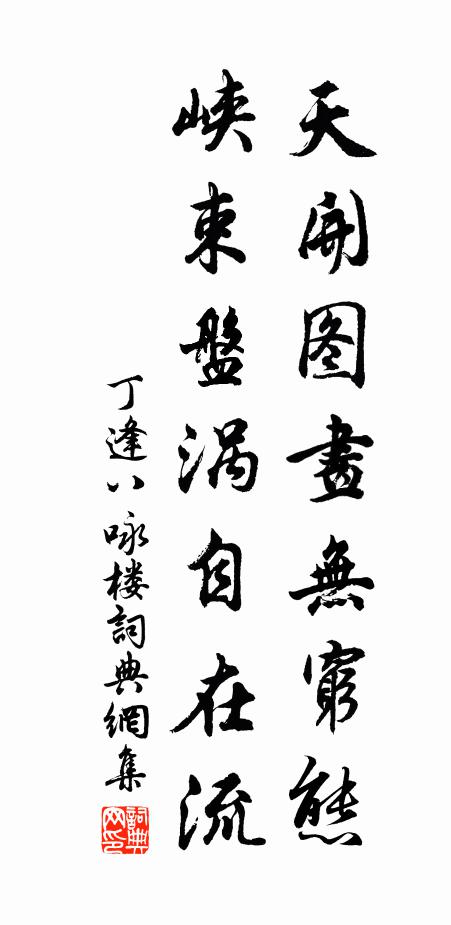 天開图畫無窮態
峡束盤涡自在流
丁逢八咏楼詞典網集
詞典网印